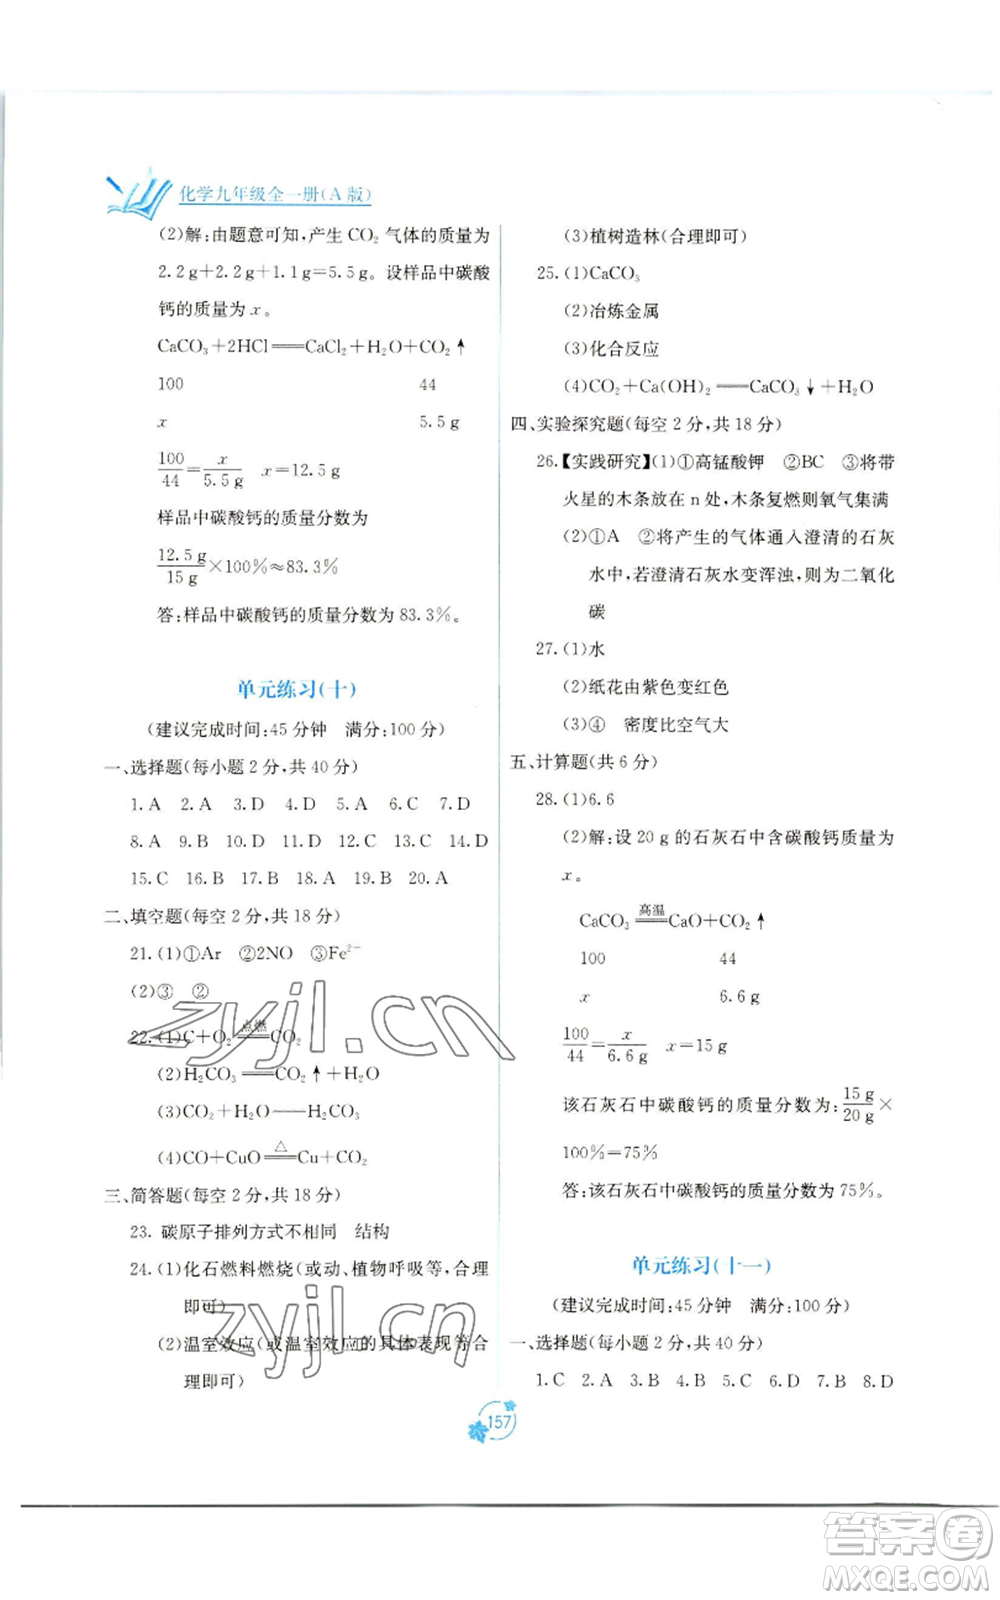 化学九年级全一册(A版)
(2)解:由题意可知,产生 CO₂ 气体的质量为
2.2 g+2.2 g+1.1 g=5.5 g。设样品中碳酸
钙的质量为 x。
CaCO₃+2HCl══CaCl₂+H₂O+CO₂↑
100 44
x 5.5 g
100/44=x/5.5 g x=12.5 g
样品中碳酸钙的质量分数为
12.5 g/15 g×100%≈83.3%
答:样品中碳酸钙的质量分数为 83.3%。
单元练习(十)
(建议完成时间:45 分钟 满分:100 分)
一、选择题(每小题 2 分,共 40 分)
1. A 2. A 3. D 4. D 5. A 6. C 7. D
8. A 9. B 10. D 11. D 12. B 13. C 14. D
15. C 16. B 17. B 18. A 19. C 20. A
二、填空题(每空 2 分,共 18 分)
21. (1)①Ar ②2NO ③Fe²⁻
(2)③ ②
22. (1)C+O₂ 点燃══ CO₂
(2)H₂CO₃══CO₂↑+H₂O
(3)CO₂+H₂O──H₂CO₃
(4)CO+CuO △══ Cu+CO₂
三、简答题(每空 2 分,共 18 分)
23. 碳原子排列方式不相同 结构
24. (1)化石燃料燃烧(或动、植物呼吸等,合理
即可)
(2)温室效应(或温室效应的具体表现等合
理即可)
(3)植树造林(合理即可)
25. (1)CaCO₃
(2)冶炼金属
(3)化合反应
(4)CO₂+Ca(OH)₂══CaCO₃↓+H₂O
四、实验探究题(每空 2 分,共 18 分)
26.【实践研究】(1)①高锰酸钾 ②BC ③将带
火星的木条放在 n 处,木条复燃则氧气集满
(2)①A ②将产生的气体通入澄清的石灰
水中,若澄清石灰水变浑浊,则为二氧化
碳
27. (1)水
(2)纸花由紫色变红色
(3)④ 密度比空气大
五、计算题(共 6 分)
28. (1)6.6
(2)解:设 20 g 的石灰石中含碳酸钙质量为
x。
CaCO₃ 高温══ CaO+CO₂↑
100 44
x 6.6 g
100/44=x/6.6 g x=15 g
该石灰石中碳酸钙的质量分数为:15 g/20 g×
100%=75%
答:该石灰石中碳酸钙的质量分数为 75%。
单元练习(十一)
(建议完成时间:45 分钟 满分:100 分)
一、选择题(每小题 2 分,共 40 分)
1. C 2. A 3. B 4. C 5. B 6. D 7. B 8. D
157
zyjl.cn
zyjl.cn
答案卷
MXQE.COM